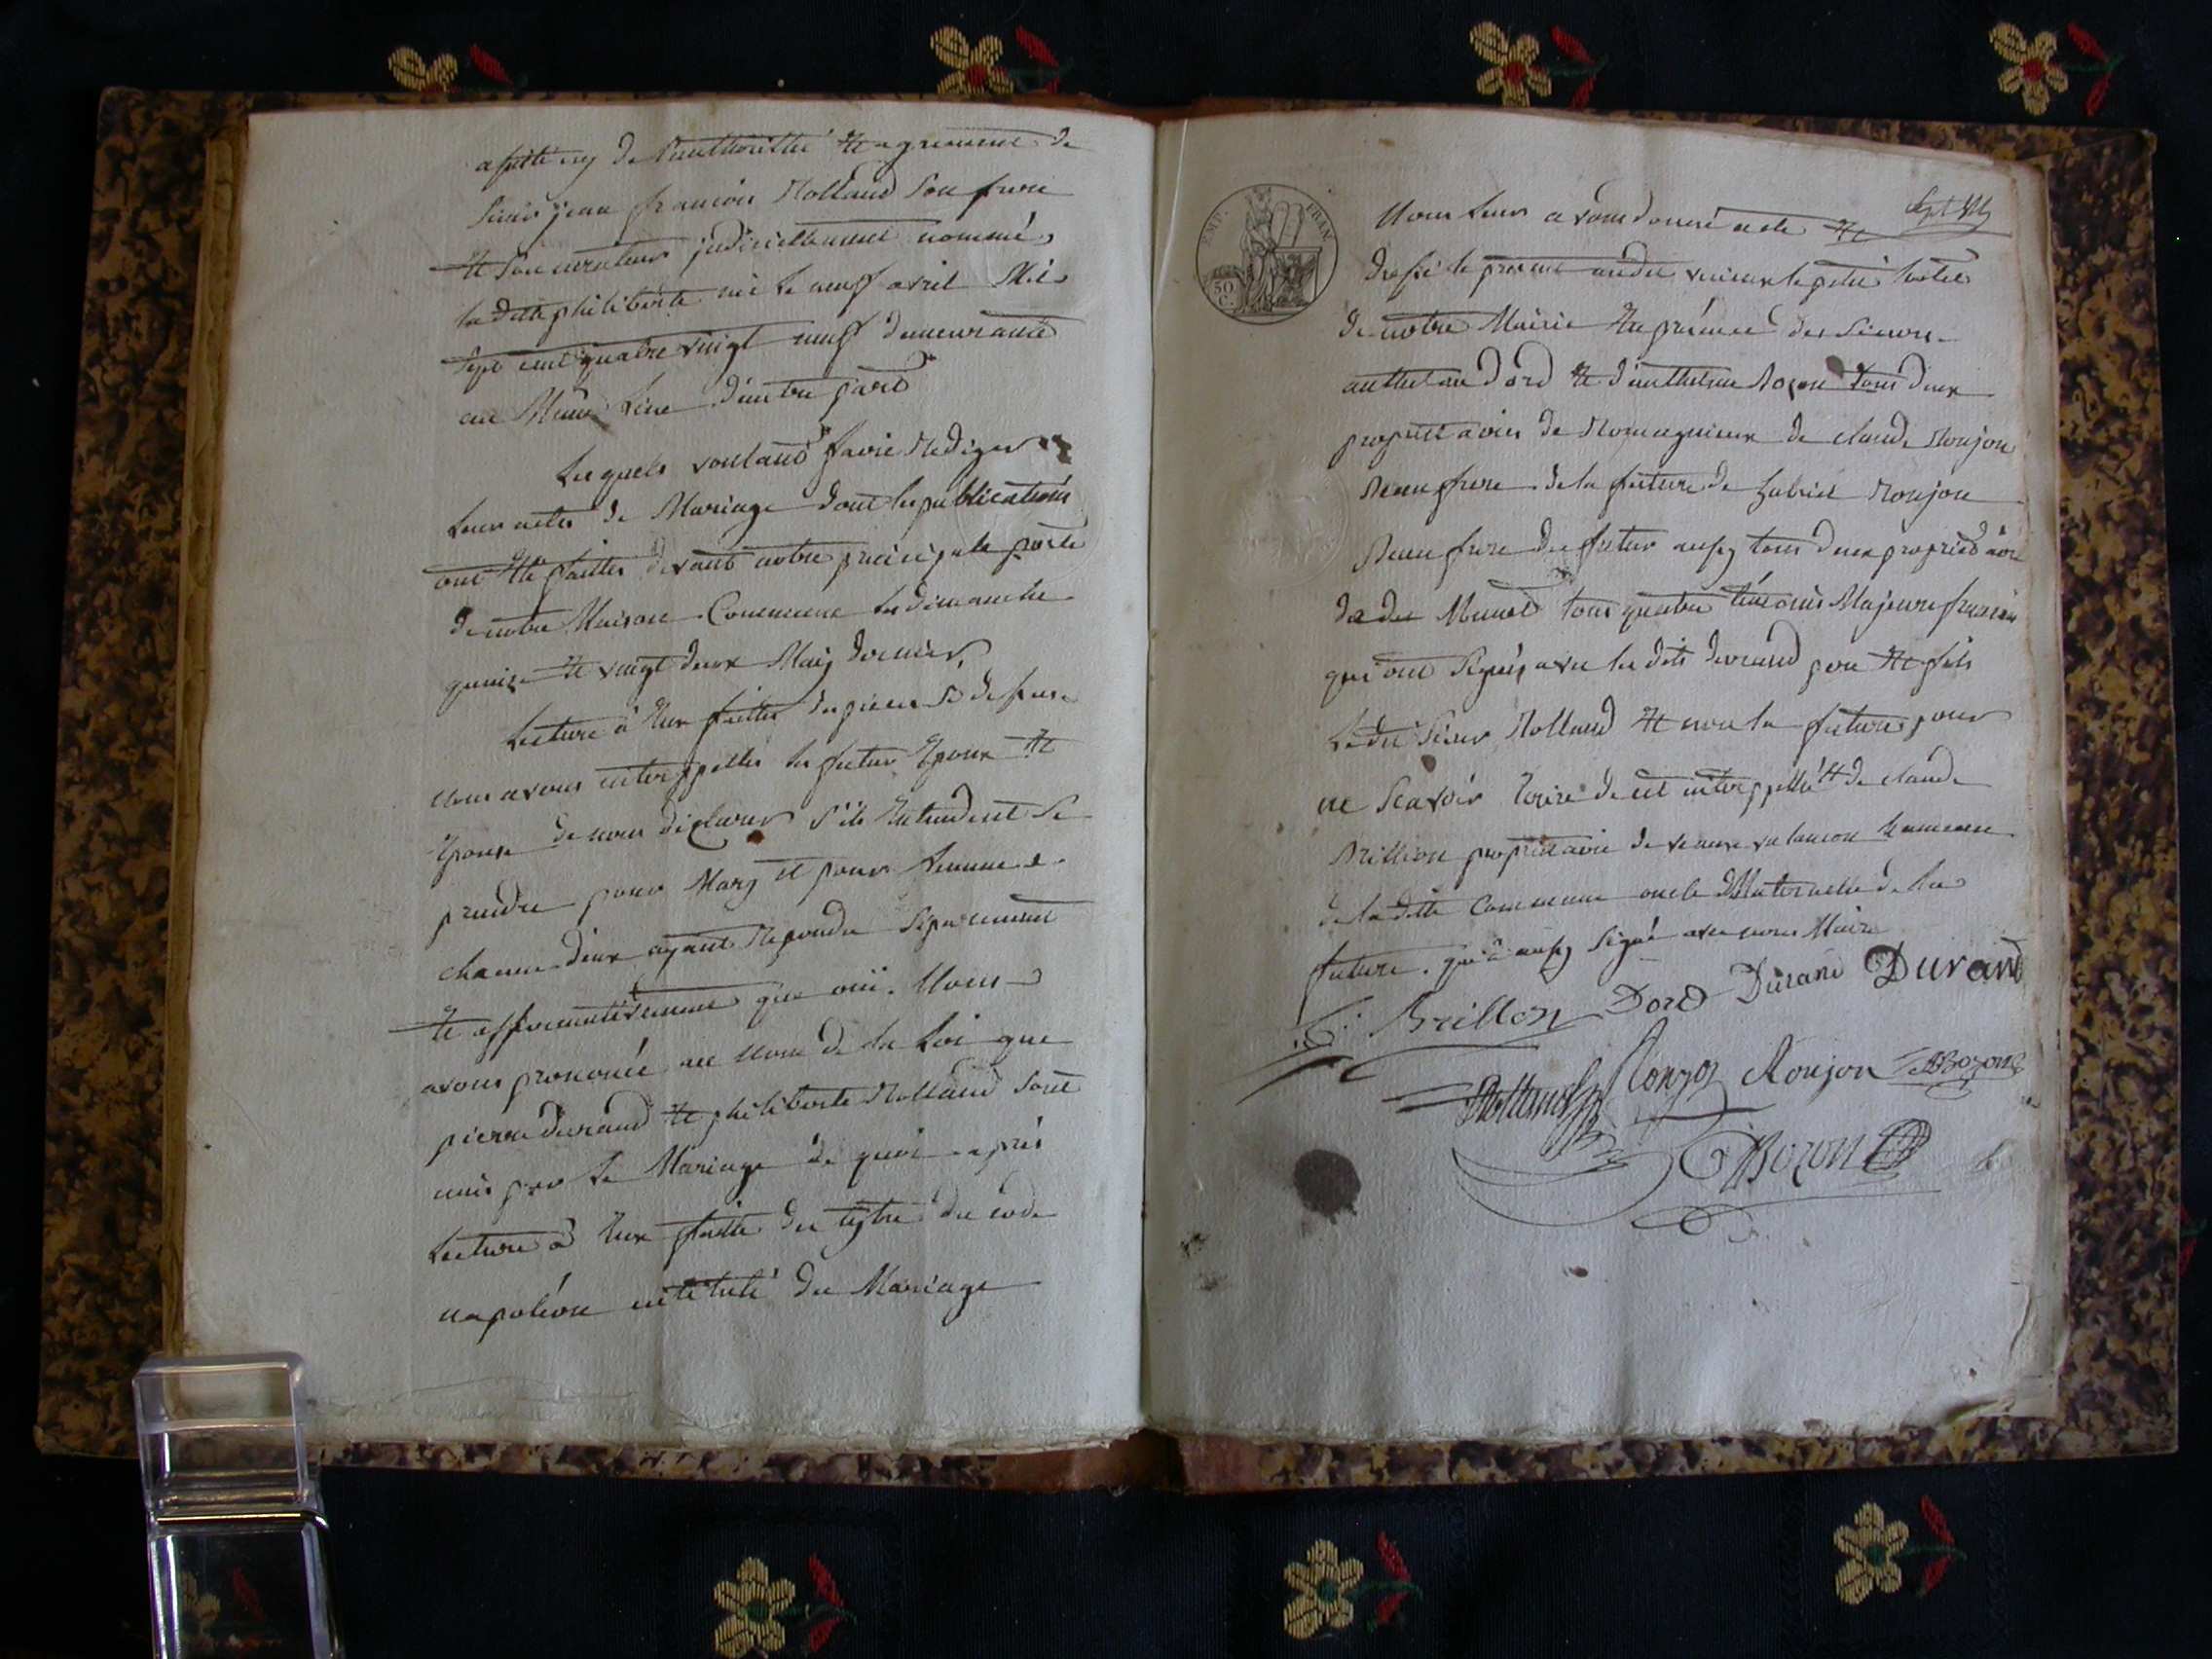 de l'authorithé et agrement de
Sieur jean francois Rolland son frere
et son curateur judiciellement nommé,
la ditte philiberte née le neuff avril Mil
sept cent quatre vingt neuff demeurante
au Meme Lieu d'autre part
Lesquels voulant faire Rediger
leurs actes de Mariage dont les publications
ont été faittes devant notre principale porte
de notre Maison Commune les dimanche
quinze et vingt deux May dernier,
Lecture à Eux faittes des pieces
nous avons interppellés les futur Epoux et
Epouse de nous déclarer s'ils Entendent se
prendre pour Mary et pour femme
chacun d'eux ayant Repondu Séparement
et affirmativement que oüi. Nous
avons prononcé au nom de la Loi que
pierre durand et philiberte Rolland sont
unis par le Mariage de quoi après
Lecture à Eux faitte du tytre du code
napoléon intitulé du Mariage
EMP. FRAN.
50 C.
Nous leurs avons donné acte et
dressé le present audit
de notre Mairie En présence des Sieurs
anthelme Dord et d'anthelme Bozon tous deux
propriettaires de de claude Roujon
Beau frere de la future de gabriel Roujon
Beau frere du futur aussy tous deux propriettaire
tous quatre témoins Majeurs francais
qui ont Signés avec les dits durand pere et fils
Ledit Sieur Rolland et non la future pour
ne Scavoir Ecrire de ce interppellée et de claude
Brillion propriettaire de hameau
de la ditte Commune oncle Maternelle de la
future. qui à aussy Signé avec nous Maire
Brillon Dord Durand Durand
Rolland Roujon Roujon ABozon
Bozon